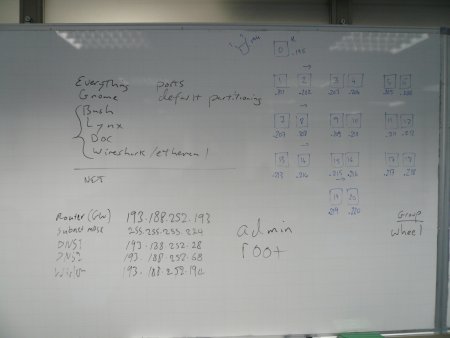 0 .195
Everything ports
Gnome default partitioning
Bash
Lynx
Doc
Wireshark/ethereal
NET
1 2 3 4 5 6
.201 .202 .203 .204 .205 .206
7 8 9 10 11 12
.207 .208 .209 .210 .211 .212
13 14 15 16 17 18
.213 .214 .215 .216 .217 .218
19 20
.219 .220
Router (GW) 193.188.252.193
Subnet mask 255.255.255.224
DNS1 193.188.252.28
DNS2 193.188.252.68
193.188.252.194
admin
root
Group
wheel